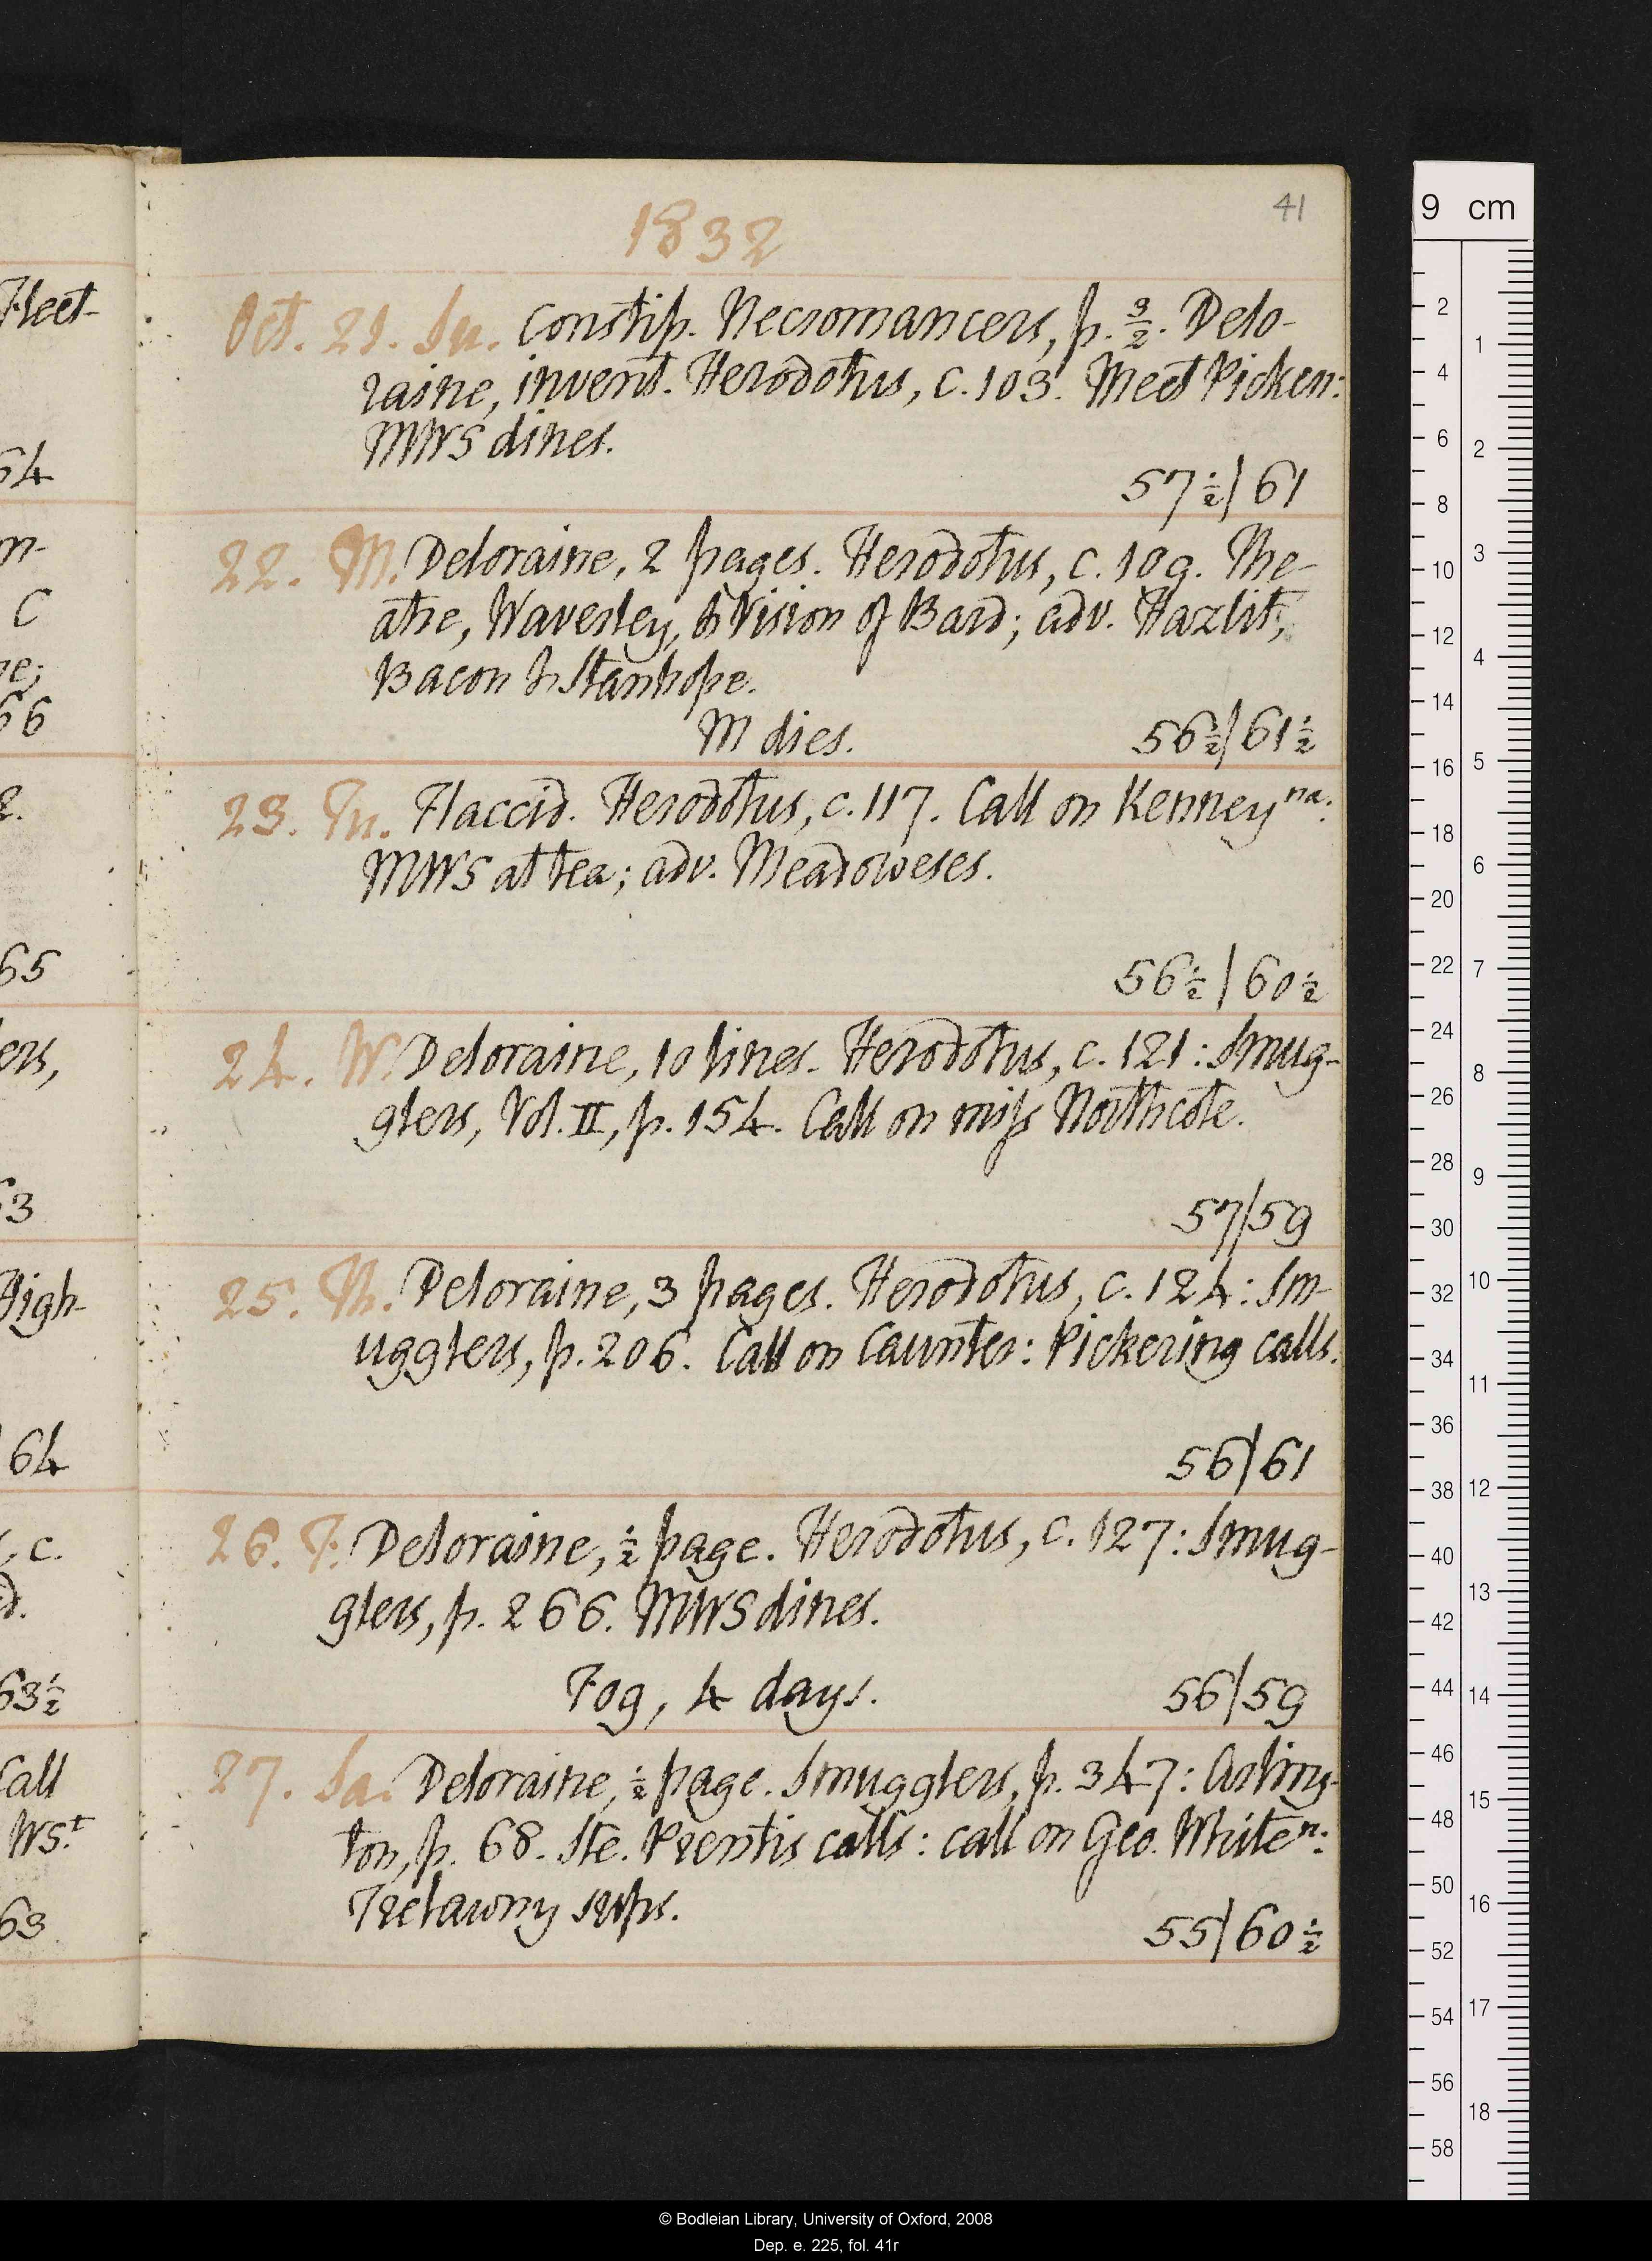 41
1832
Oct. 21. Su. Constip. Necromancers, p. 3/2. Delo-
raine, invent. Herodotus, c. 103. Meet Picken:
MWS dines.
57½/61
22. M. Deloraine, 2 pages. Herodotus, c. 109. The-
atre, Waverley, & Vision of Bard; adv. Hazlit,
Bacon & Stanhope.
M dies. 56½/61½
23. Tu. Flaccid. Herodotus, c. 117. Call on Kenney na:
MWS at tea; adv. Meadowses.
56½/60½
24. W. Deloraine, 10 lines. Herodotus, c. 121: Smug-
glers, Vol. II, p. 154. Call on miss Northcote.
57/59
25. Th. Deloraine, 3 pages. Herodotus, c. 124: Sm-
ugglers, p. 206. Call on Caunter: Pickering calls.
56/61
26. F. Deloraine, ½ page. Herodotus, c. 127: Smug-
glers, p. 266. MWS dines.
Fog, 4 days. 56/59
27. Sa. Deloraine, ½ page. Smugglers, p. 347: Arling-
ton, p. 68. Ste. Prentis calls: call on Geo. White n:
Trelawny sups.
55/60½
Fleet-
64
m-
C
66
2.
65
ers,
63
High-
64
, c.
d.
63½
Call
WSt
63
9 cm
2
4
6
8
10
12
14
16
18
20
22
24
26
28
30
32
34
36
38
40
42
44
46
48
50
52
54
56
58
1
2
3
4
5
6
7
8
9
10
11
12
13
14
15
16
17
18
© Bodleian Library, University of Oxford, 2008
Dep. e. 225, fol. 41r